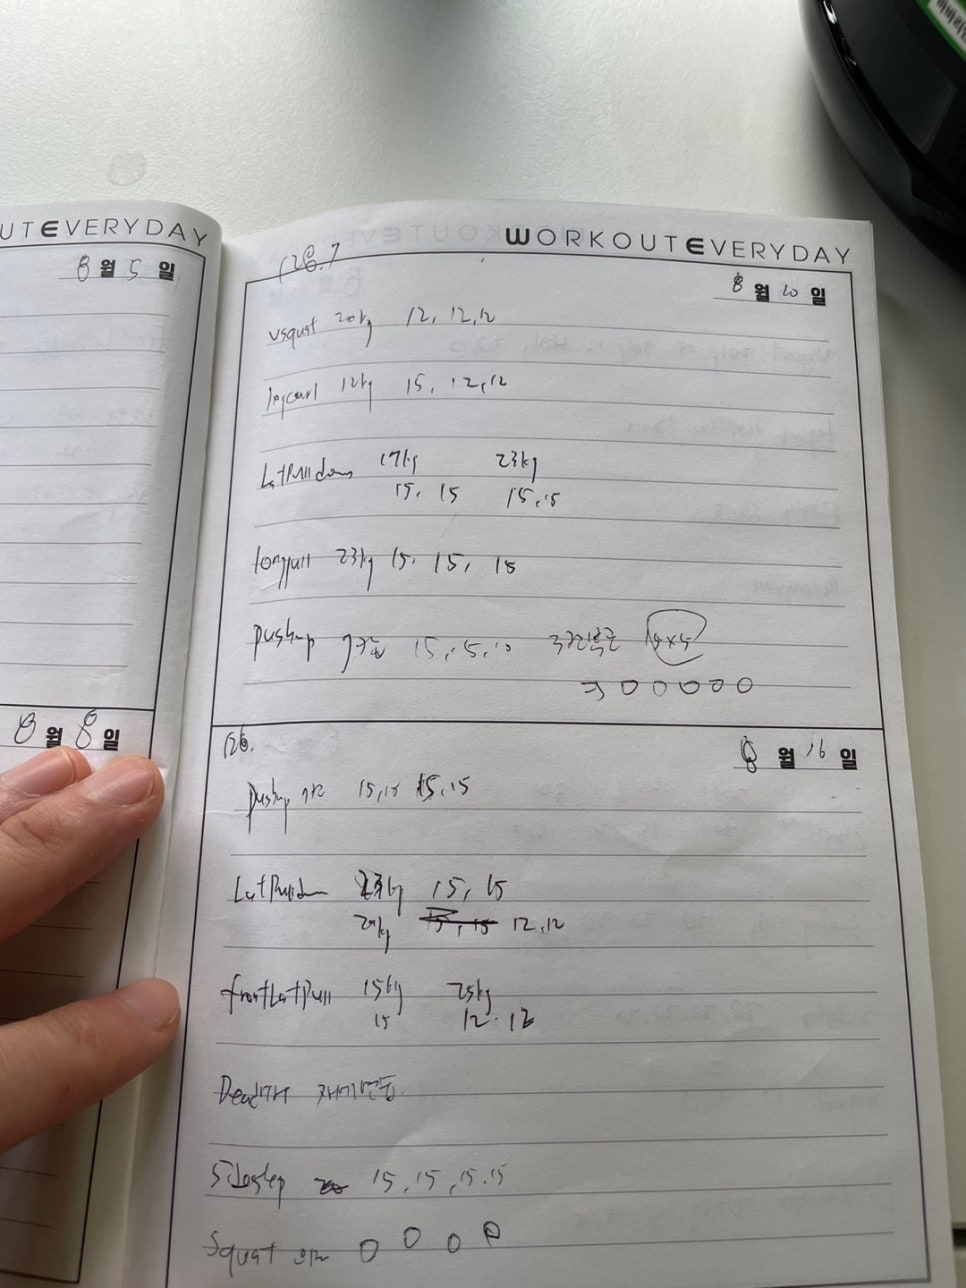 UTEVERYDAY
8월 5일
8월 8일
WORKOUTEVERYDAY
126.7
8월 20일
vsquat 20kg 12, 12, 12
legcurl 12kg 15, 12, 12
Latpulldown 17kg 23kg
15, 15 15, 15
longpull 23kg 15, 15, 15
pushup 15, 15, 10
0 0 0 0 0
126.
8월 16일
pushup 15, 15 15, 15
Latpulldown 23kg 15, 15
12, 12
frontLatpull 15kg 25kg
15 12. 12
Dead
Sidestep 15, 15, 15, 15
Squat 0 0 0 0